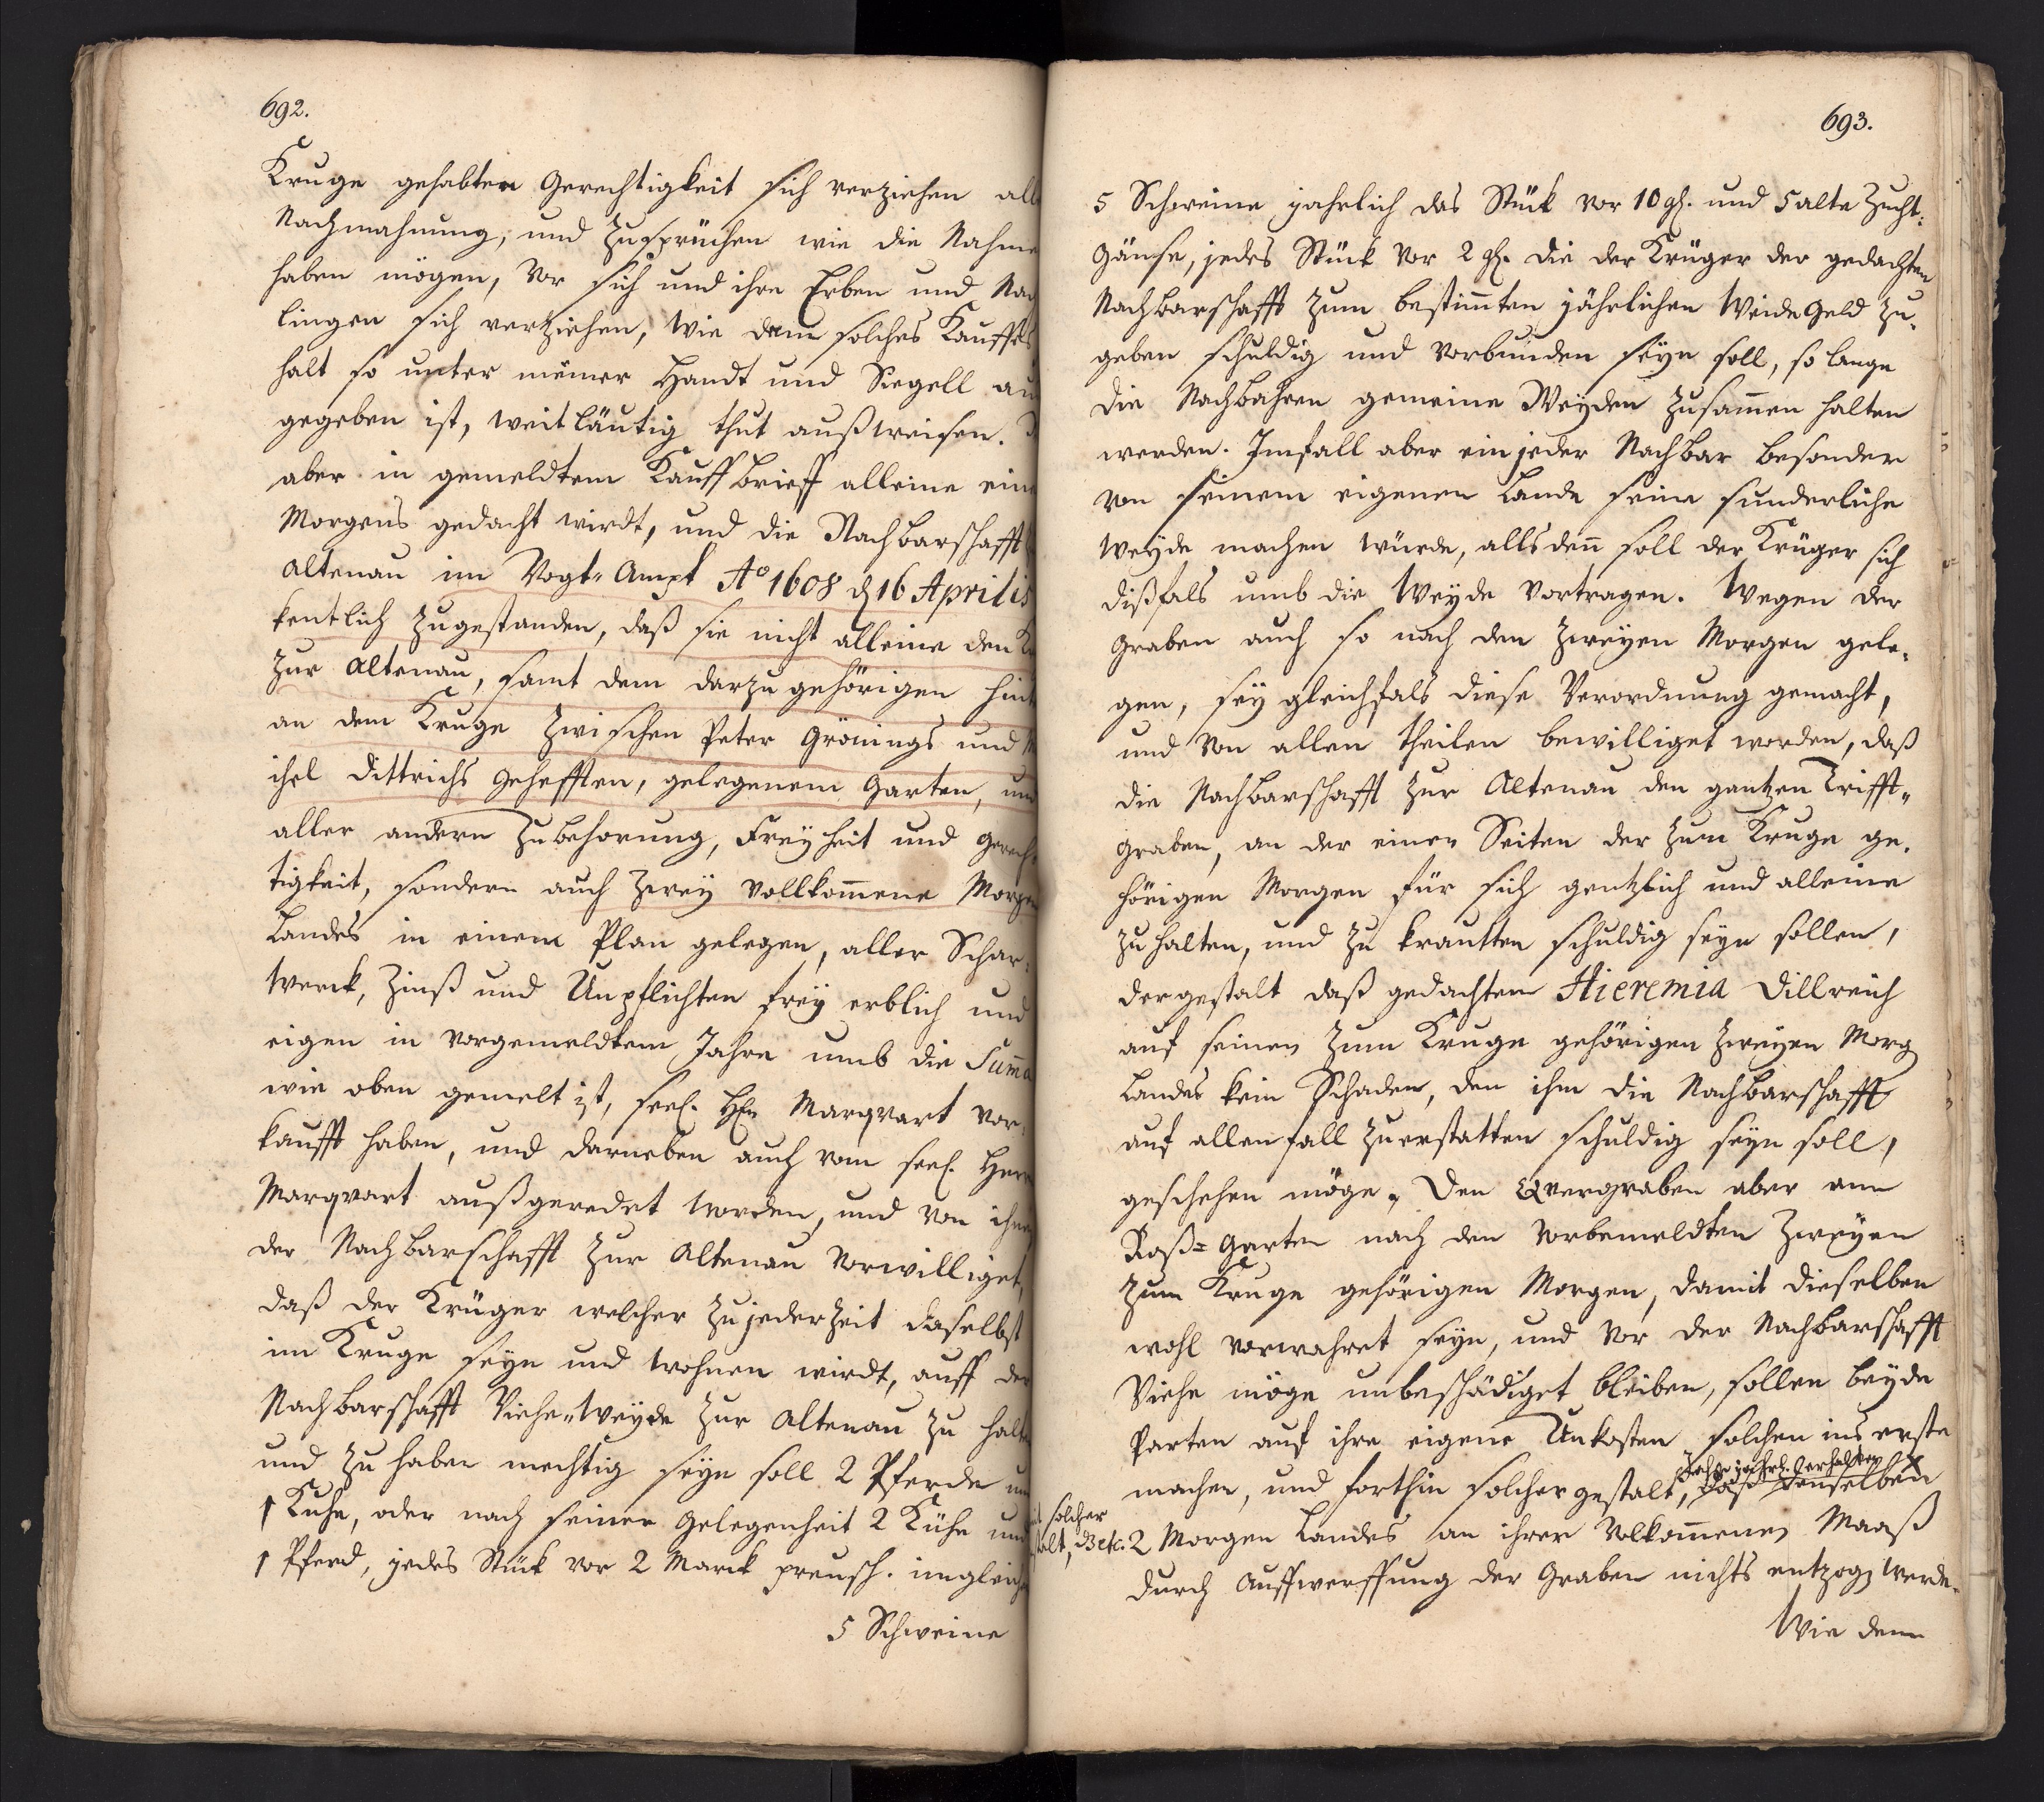 692.
Kruge gehabten Gerechtigkeit sich verziehen all
Nachmahnung, und Zusprüchen wie die Nahme
haben mögen, Vor sich und ihre Erben und Nac
lingen sich verziehen, Wie denn solches Kauffes
halt so unter meiner Handt und Siegell au
gegeben ist, weitläutig thut außweisen.
aber in gemeldtem Kauffbrieff alleine eine
Morgens gedacht wirdt, und die Nachbarschafft
Altenau im Vogt-Ampt Ao 1608 d 16 Aprilis
kentlich zugestanden, daß sie nicht alleine den K
zur Altenau, samt dem darzu gehörigen hint
an dem Kruge zwischen Peter Grönings und
ihel Dittrichs Gehefften, gelegenem Garten, und
aller andern Zubehorung, Freyheit und Gerech-
tigkeit, sondern auch zwey vollkom̄ene Morgen
Landes in einem Plan gelegen, aller Schar-
Werck, Zinß und Unpflichten frey erblich und
eigen in vorgemeldtem Jahre umb die Sum̄a
wie oben gemelt ist, seel. Hh Marqvart vor-
kaufft haben, und darneben auch vom seel. Herr
Marqvart außgeredet worden, und von ihnen
der Nachbarschafft zur Altenau vorwilliget,
daß der Krüger welcher zu jederzeit daselbst
im Kruge seyn und wohnen wirdt, auff der
Nachbarschafft Viehe-Weyde zur Altenau zu halte
und zu haben mechtig seyn soll 2 Pferde un
1 Kuhe, oder nach seiner Gelegenheit 2 Kühe und
1 Pferd, jedes Stück vor 2 Marck preusch. imgleich
5 Schweine
693.
5 Schweine jahrlich das Stück vor 10 gl. und 5 alte Zucht-
Gänse, jedes Stück vor 2 gl. die der Krüger der gedachten
Nachbarschafft zum bestim̄ten jährlichen Weide Geld zu-
geben schuldig und vorbunden seyn soll, so lange
die Nachbahren gemeine Weyden zusam̄en halten
werden. Imfall aber ein jeder Nachbar besonder
von seinem eigenen Lande seine sunderliche
Weyde machen würde, allsden̄ soll der Krüger sich
dißfals umb die Weyde vortragen. Wegen der
Graben auch so nach den zweyen Morgen gele-
gen, sey gleichfals diese Verordnung gemacht,
und von allen theilen bewilliget worden, daß
die Nachbarschafft zur Altenau den gantzen Trifft-
graben, an der einen Seiten der zum Kruge ge-
hörigen Morgen für sich gentzlich und alleine
zu halten, und zu krautten schuldig seyn sollen,
dergestalt daß gedachtem Hieremia Dillreich
auf seinen zum Kruge gehörigen zweyen Morg
Landes kein Schaden, den ihm die Nachbarschafft
auf allen fall zuerstatten schuldig seyn soll,
geschehen möge. Den Qvergraben aber am
Roß-Garten nach den vorbemeldten zweyen
zum Kruge gehörigen Morgen, damit dieselben
wohl vorwahret seyn, und vor der Nachbarschafft
Viehe möge unbeschädiget bleiben, sollen beyde
Parten auf ihre eigene Unkosten solchen ins erste
machen, und forthin solcher gestalt, daß denselben
jahrl. verhalten
solcher
2 Morgen Landes an ihrer Volkom̄enen Maaß
durch Auffwerffung der Graben nichts entzog werde.
Wie denn